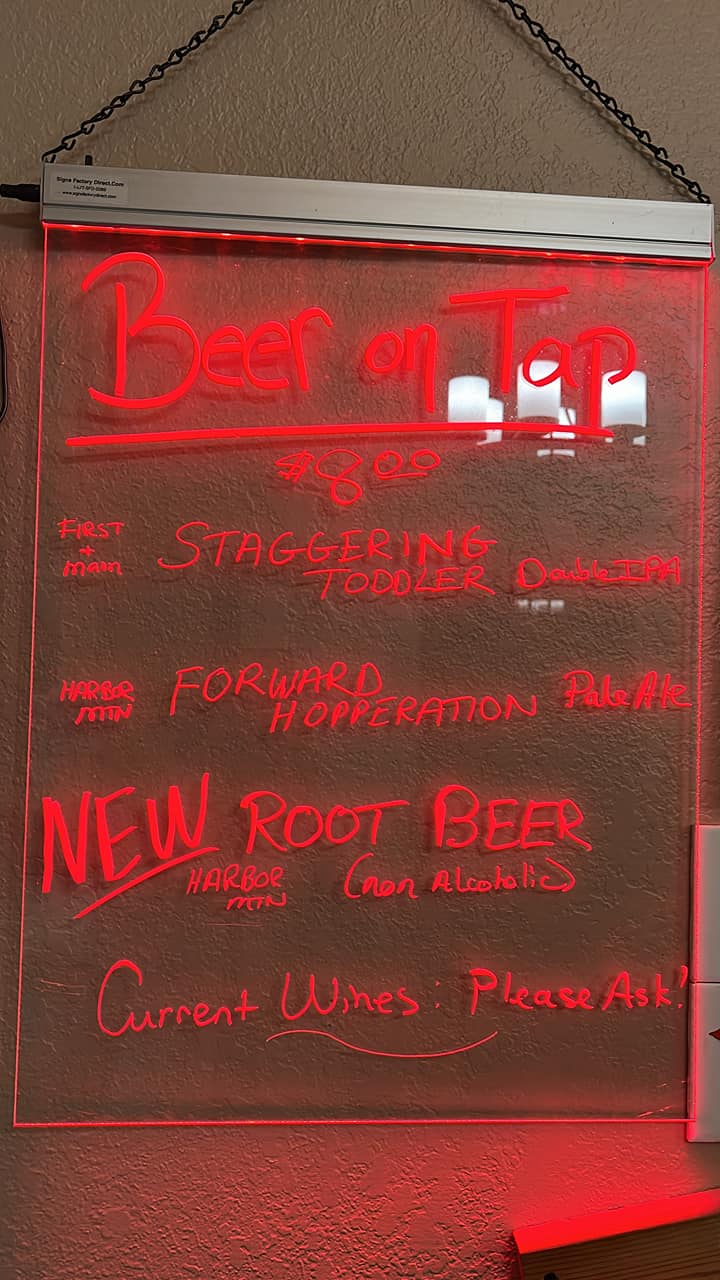 Signs Factory Direct.Com
www.signsfactorydirect.com
Beer on Tap
$8.00
FIRST + main STAGGERING TODDLER Double IPA
HARBOR MTN FORWARD HOPPERATION Pale Ale
NEW ROOT BEER
HARBOR MTN (non Alcoholic)
Current Wines: Please Ask!